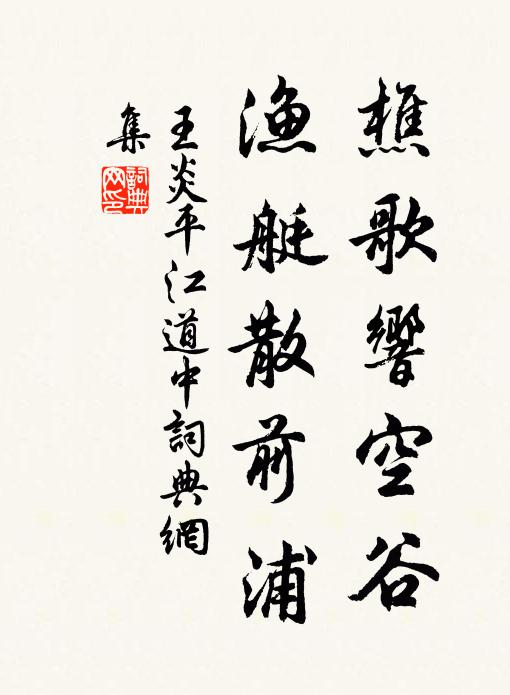 樵歌響空谷
漁艇散前浦
王炎平江道中詞典網
集
詞典网印